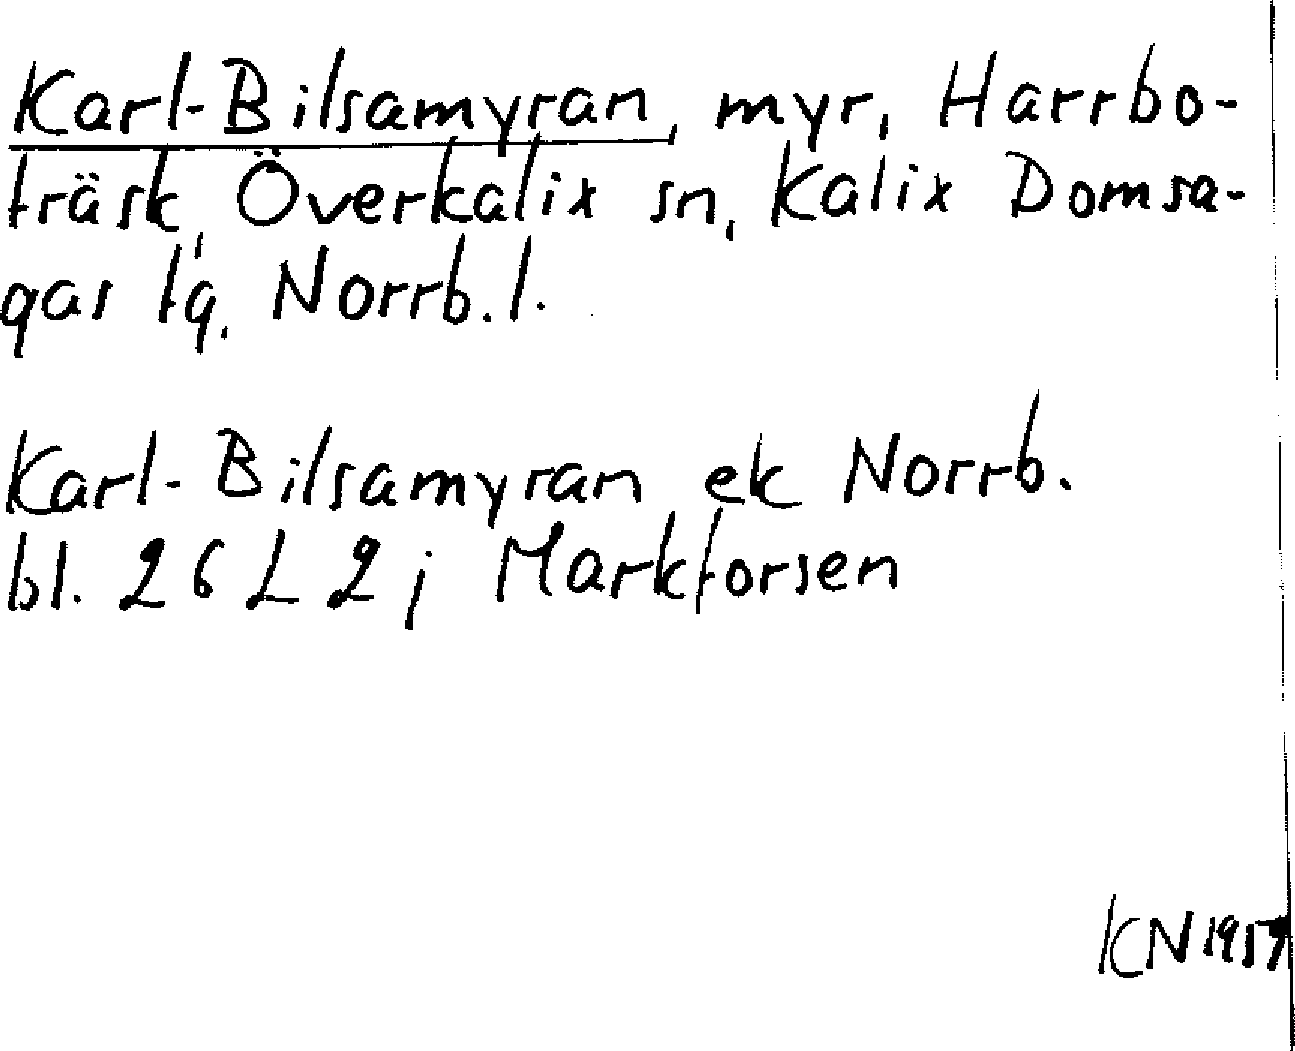 Karl-Bilsamyran, myr, Harrbo-
träsk, Överkalix sn, Kalix Domsa-
gas tg, Norrb. l.
Karl-Bilsamyran ek Norrb.
bl. 26 L 2; Markforsen
KN 1957